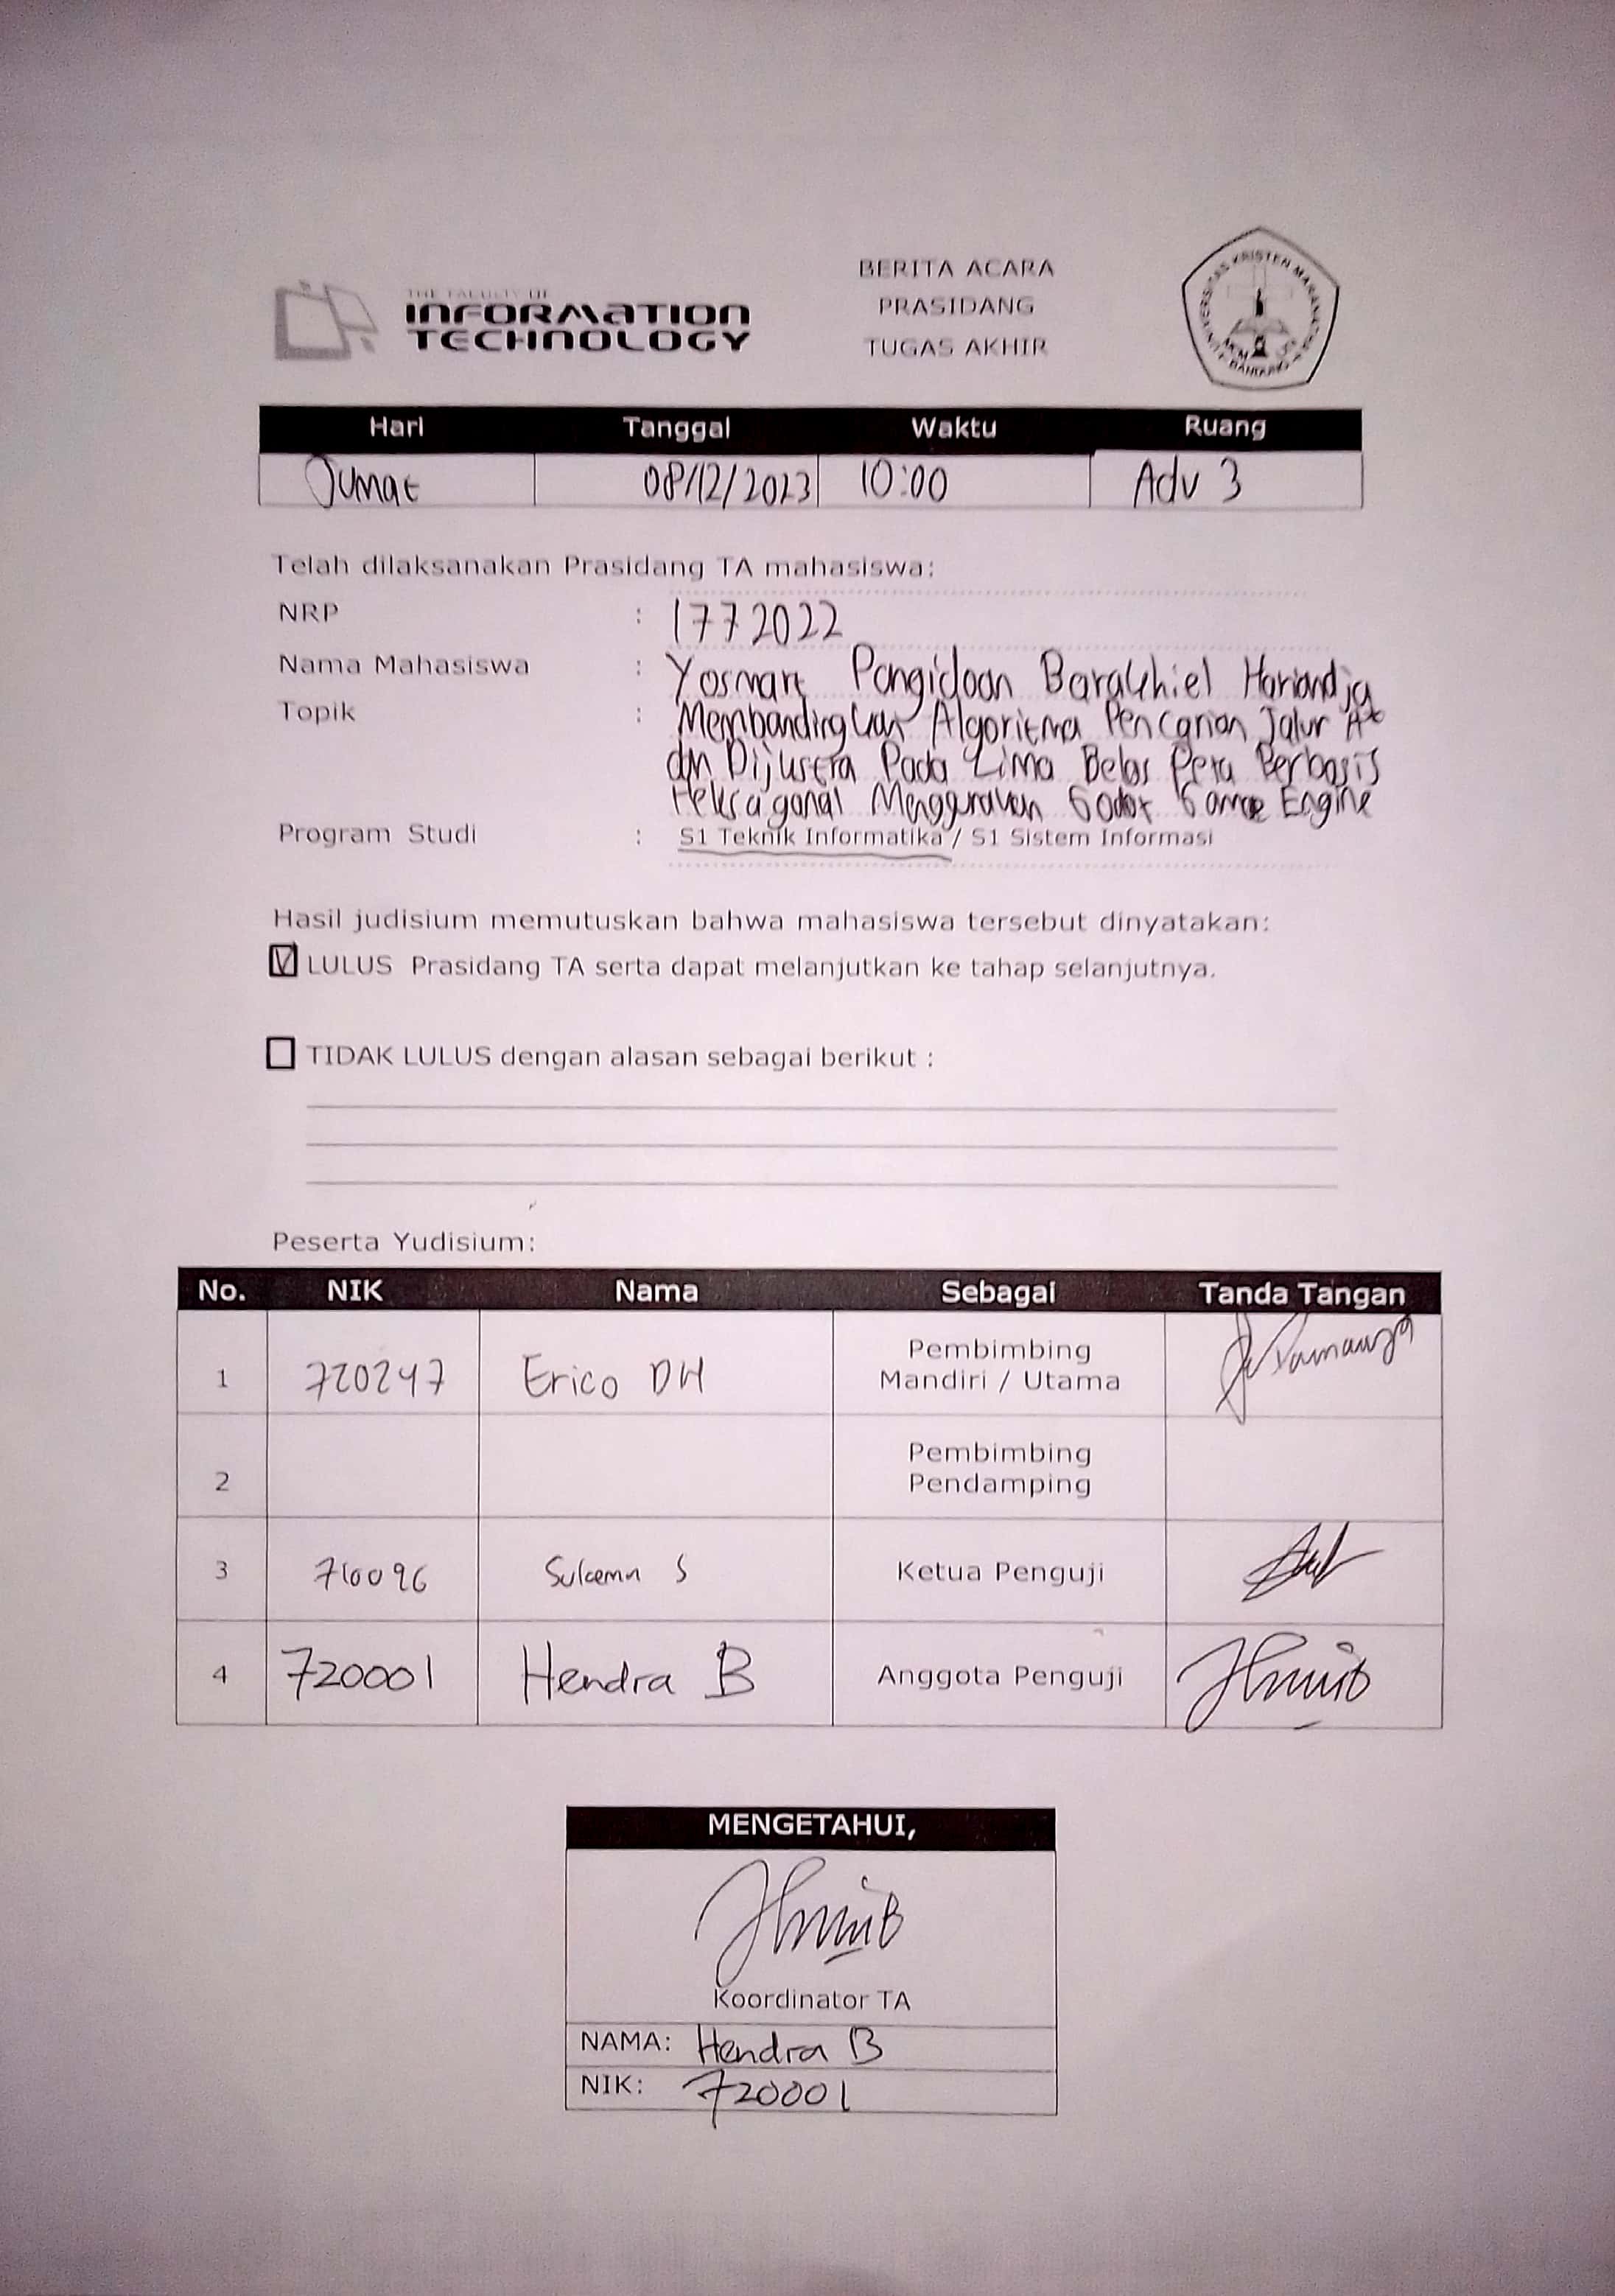 THE FACULTY OF
INFORMATION
TECHNOLOGY
BERITA ACARA
PRASIDANG
TUGAS AKHIR
UNIVERSITAS KRISTEN MARANATHA
UKM
BANDUNG
Hari Tanggal Waktu Ruang
Jumat 08/12/2023 10:00 Adv 3
Telah dilaksanakan Prasidang TA mahasiswa:
NRP : 1772022
Nama Mahasiswa : Yosmart Pangidoan Harianndja
Topik : Membandingkan Algoritma Pencarian Jalur A*
dan Dijkstra Pada Lima Belas Peta Berbasis
Heksagonal Menggunakan Godot Game Engine
Program Studi : S1 Teknik Informatika / S1 Sistem Informasi
Hasil judisium memutuskan bahwa mahasiswa tersebut dinyatakan:
LULUS Prasidang TA serta dapat melanjutkan ke tahap selanjutnya.
TIDAK LULUS dengan alasan sebagai berikut :
Peserta Yudisium:
No. NIK Nama Sebagai Tanda Tangan
1 720247 Erico DH Pembimbing
Mandiri / Utama
2 Pembimbing
Pendamping
3 710096 S Ketua Penguji
4 720001 Hendra B Anggota Penguji
MENGETAHUI,
Koordinator TA
NAMA: Hendra B
NIK: 720001